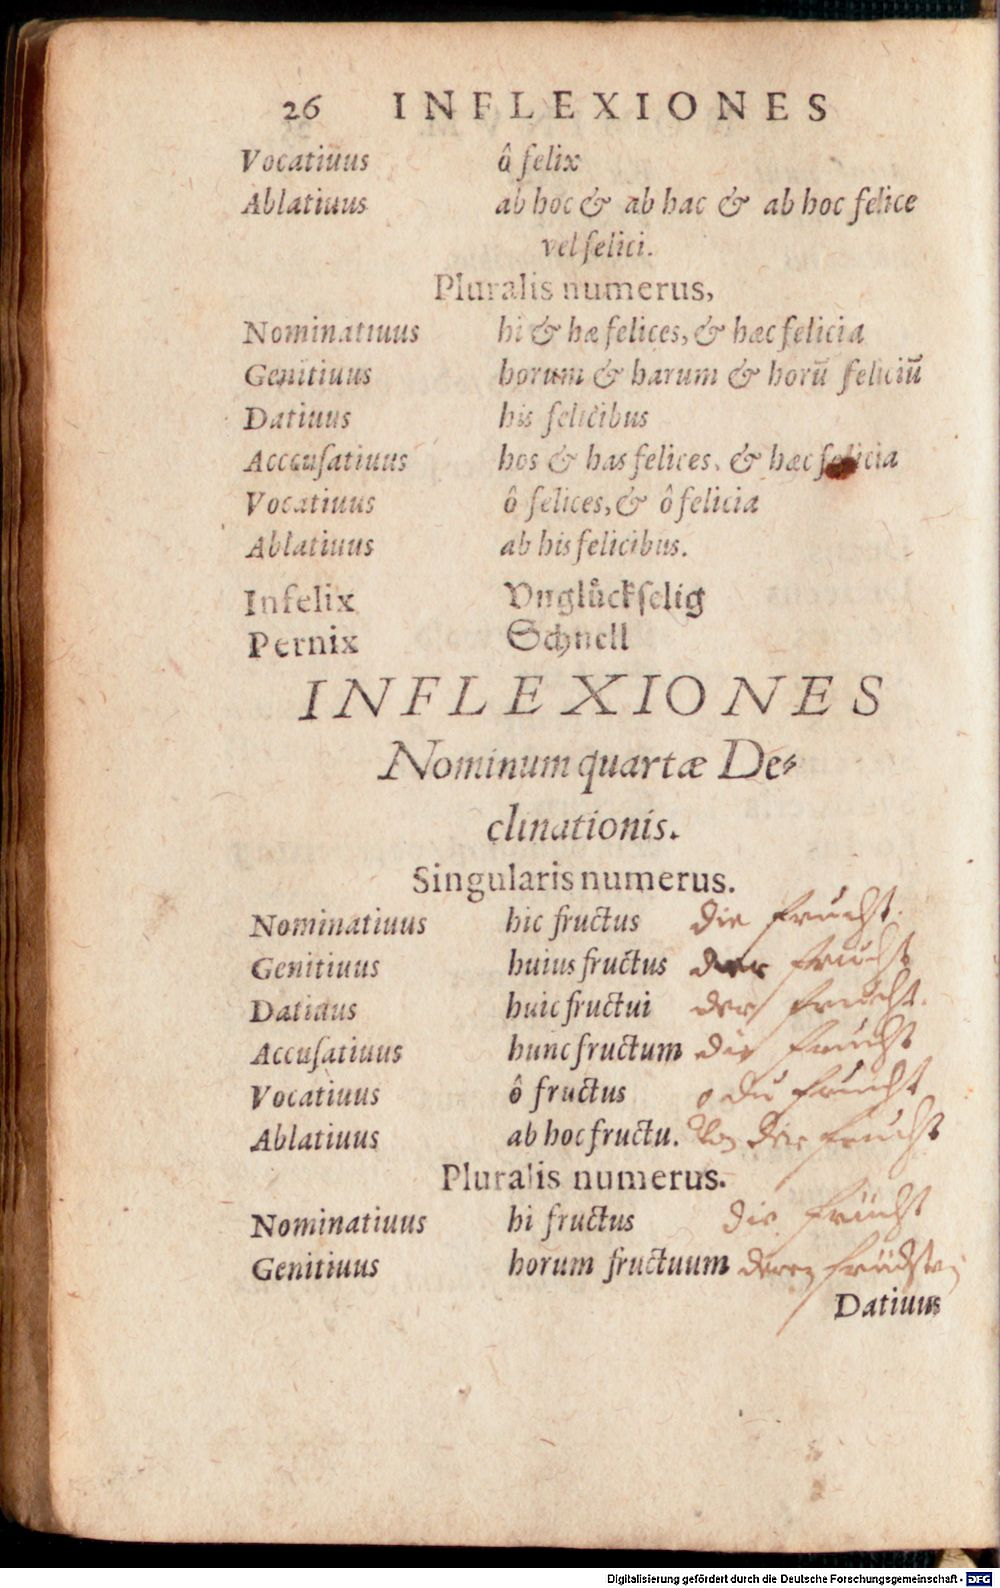 26 INFLEXIONES
Vocatiuus ô felix
Ablatiuus ab hoc & ab hac & ab hoc felice
vel felici.
Pluralis numerus,
Nominatiuus hi & hæ felices, & hæc felicia
Genitiuus horum & harum & horū feliciū
Datiuus his felicibus
Accusatiuus hos & has felices, & hæc felicia
Vocatiuus ô felices, & ô felicia
Ablatiuus ab his felicibus.
Infelix Vnglückſelig
Pernix Schnell
INFLEXIONES
Nominum quartæ De-
clinationis.
Singularis numerus.
Nominatiuus hic fructus die frucht.
Genitiuus huius fructus der frucht
Datiuus huic fructui der frucht.
Accuſatiuus hunc fructum die frucht
Vocatiuus ô fructus o du frucht
Ablatiuus ab hoc fructu. Von der frucht
Pluralis numerus.
Nominatiuus hi fructus die frücht
Genitiuus horum fructuum deren früchten
Datiuus
Digitalisierung gefördert durch die Deutsche Forschungsgemeinschaft - DFG